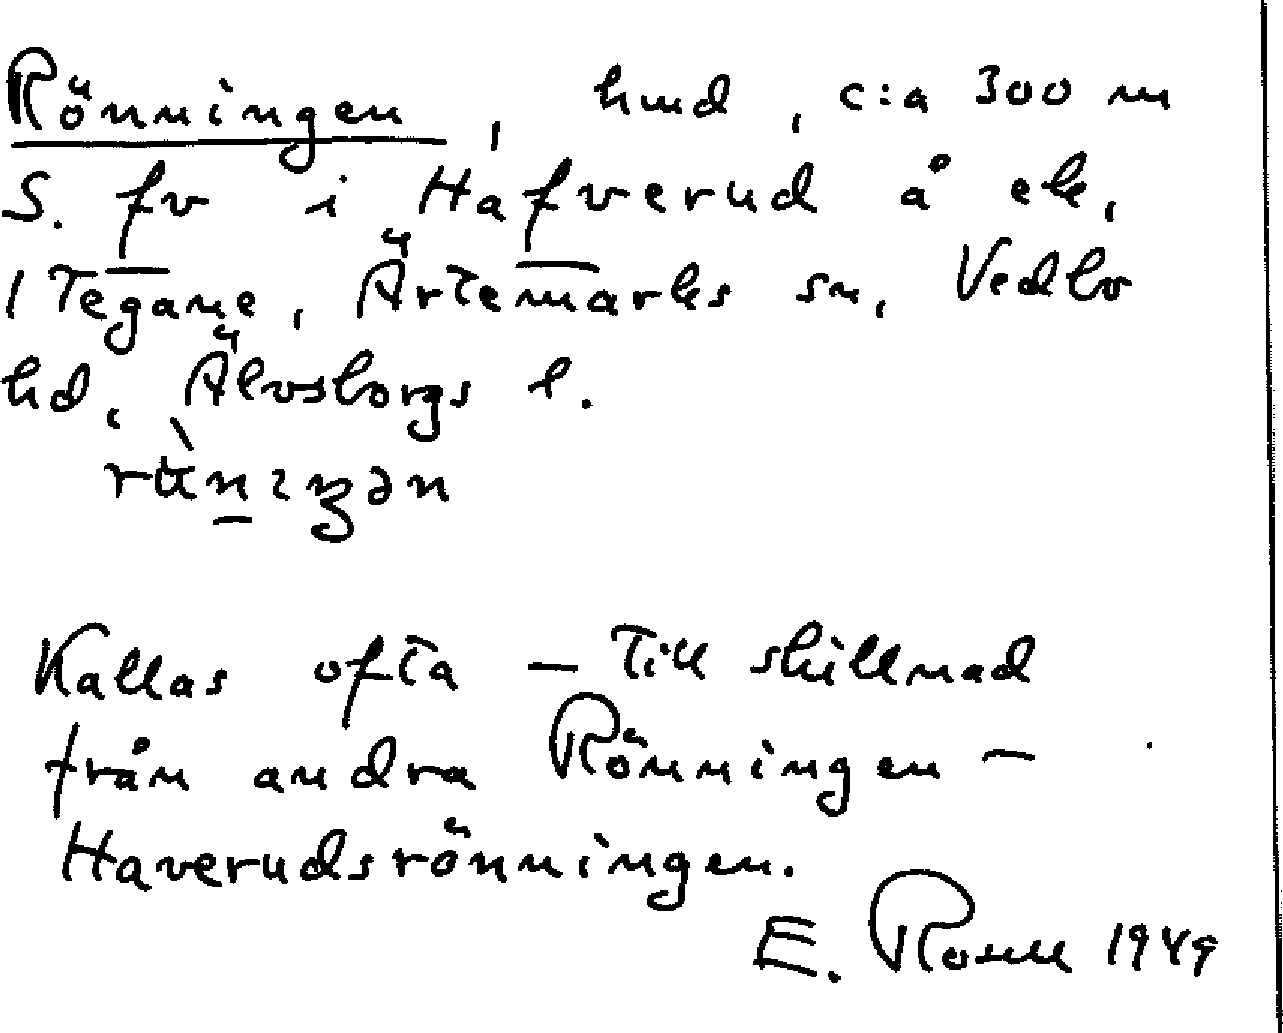 Rönningen, hmd, c:a 300 m
S. fv i Hafverud å ek,
1 Tegane, Ärtemarks sn, Vedbo
hd, Älvsborgs l.
Kallas ofta – till skillnad
från andra Rönningen –
Haverudsrönningen.
E. Rosell 1949